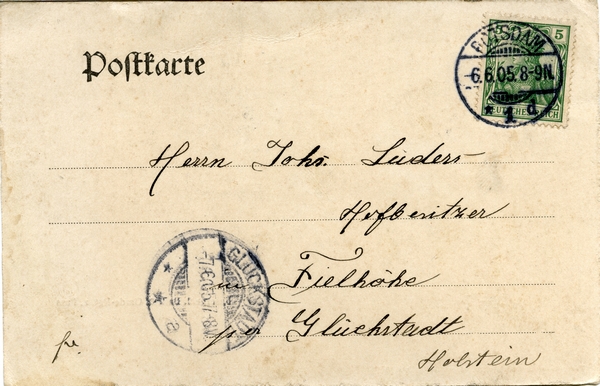 Postkarte
5
POTSDAM
6.6.05.8-9N.
* 1 d.
DEUTSCHES REICH
Herrn Johs. Lüders
Hofbesitzer
in Fielhöhe
per Glückstadt
Holstein
GLÜCKSTADT
7.6.05.7-8V.
* * a